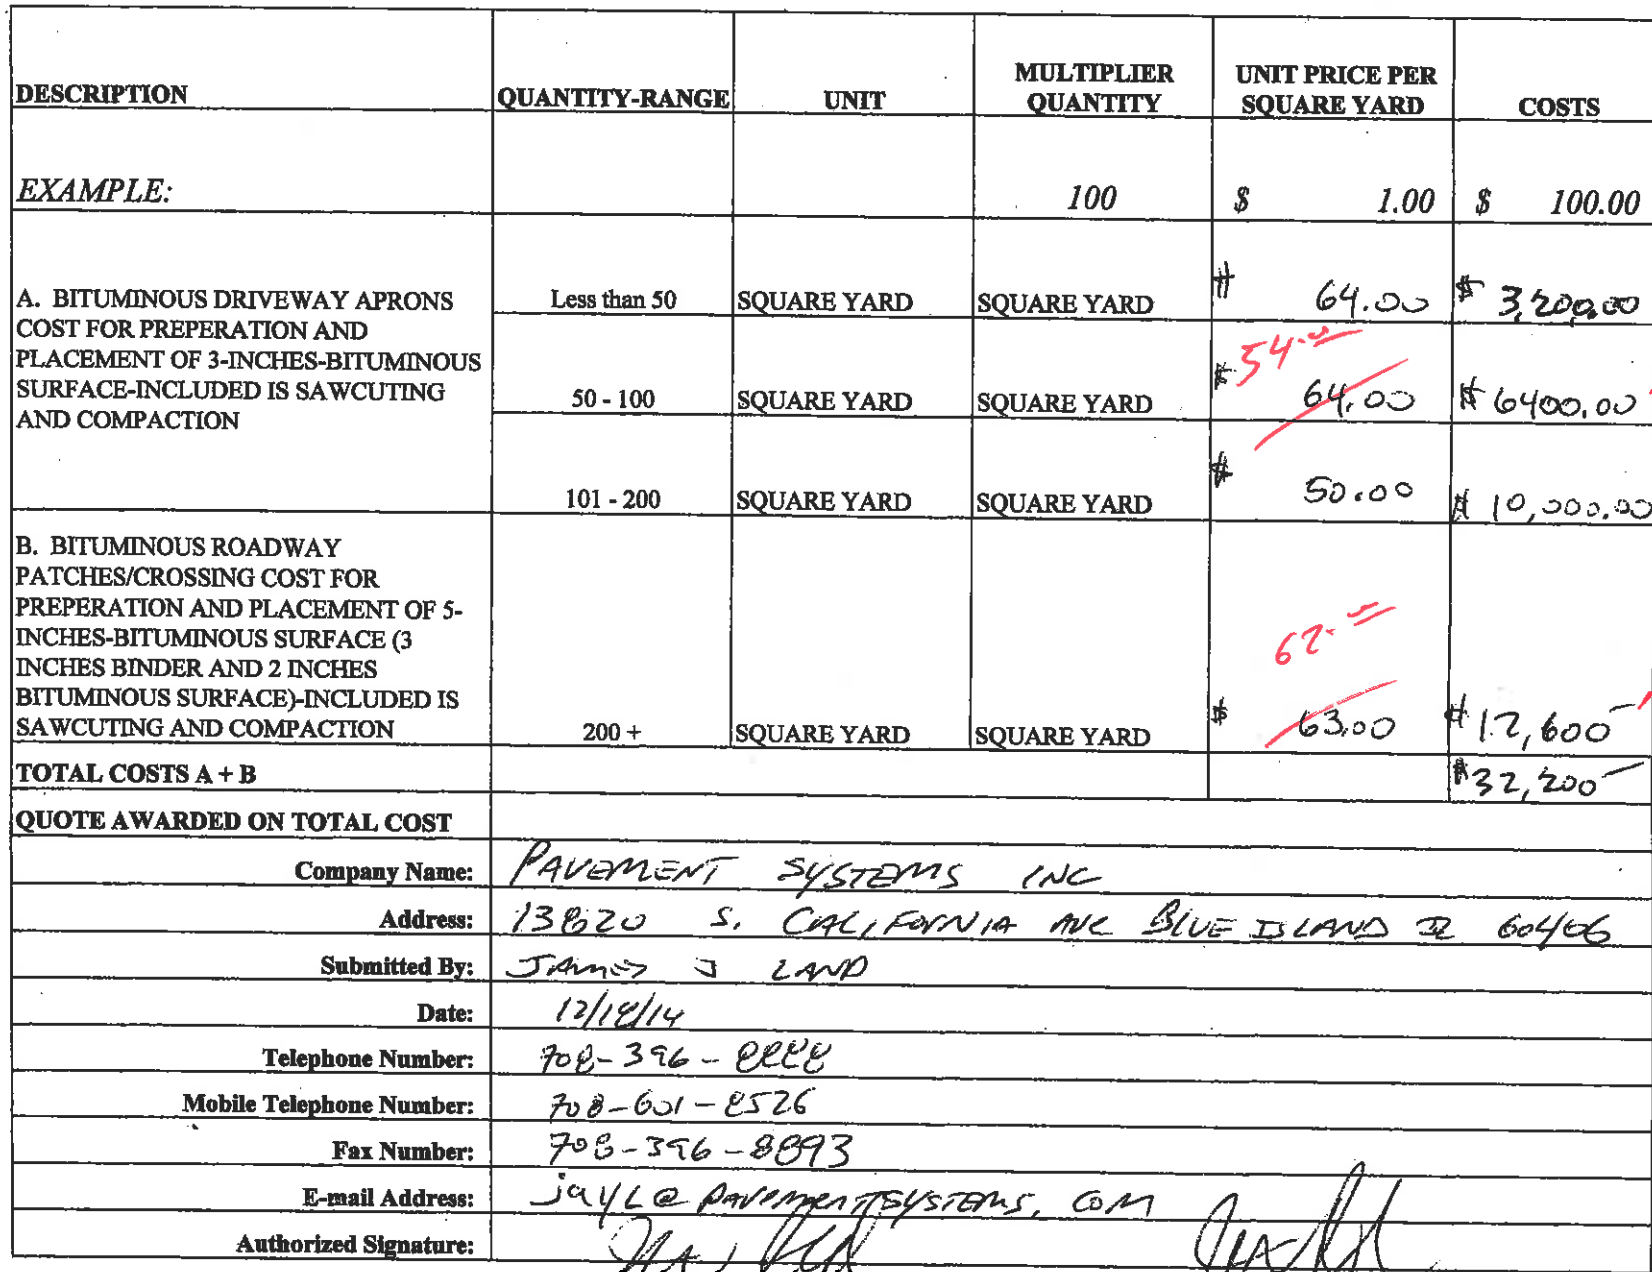 DESCRIPTION QUANTITY-RANGE UNIT MULTIPLIER QUANTITY UNIT PRICE PER SQUARE YARD COSTS
EXAMPLE: 100 $ 1.00 $ 100.00
A. BITUMINOUS DRIVEWAY APRONS
COST FOR PREPERATION AND
PLACEMENT OF 3-INCHES-BITUMINOUS
SURFACE-INCLUDED IS SAWCUTING
AND COMPACTION
Less than 50 SQUARE YARD SQUARE YARD $ 64.00 $ 3,200.00
54.00
50 - 100 SQUARE YARD SQUARE YARD $ 64.00 $ 6400.00
101 - 200 SQUARE YARD SQUARE YARD $ 50.00 $ 10,000.00
B. BITUMINOUS ROADWAY
PATCHES/CROSSING COST FOR
PREPERATION AND PLACEMENT OF 5-
INCHES-BITUMINOUS SURFACE (3
INCHES BINDER AND 2 INCHES
BITUMINOUS SURFACE)-INCLUDED IS
SAWCUTING AND COMPACTION
62.00
200 + SQUARE YARD SQUARE YARD $ 63.00 $ 12,600
TOTAL COSTS A + B $32,200
QUOTE AWARDED ON TOTAL COST
Company Name: PAVEMENT SYSTEMS INC
Address: 13820 S. CALIFORNIA AVE BLUE ISLAND IL 60406
Submitted By: JAMES J LAND
Date: 12/18/14
Telephone Number: 708-396-8888
Mobile Telephone Number: 708-601-8526
Fax Number: 708-396-8893
E-mail Address: jayL@pavementsystems.com
Authorized Signature: